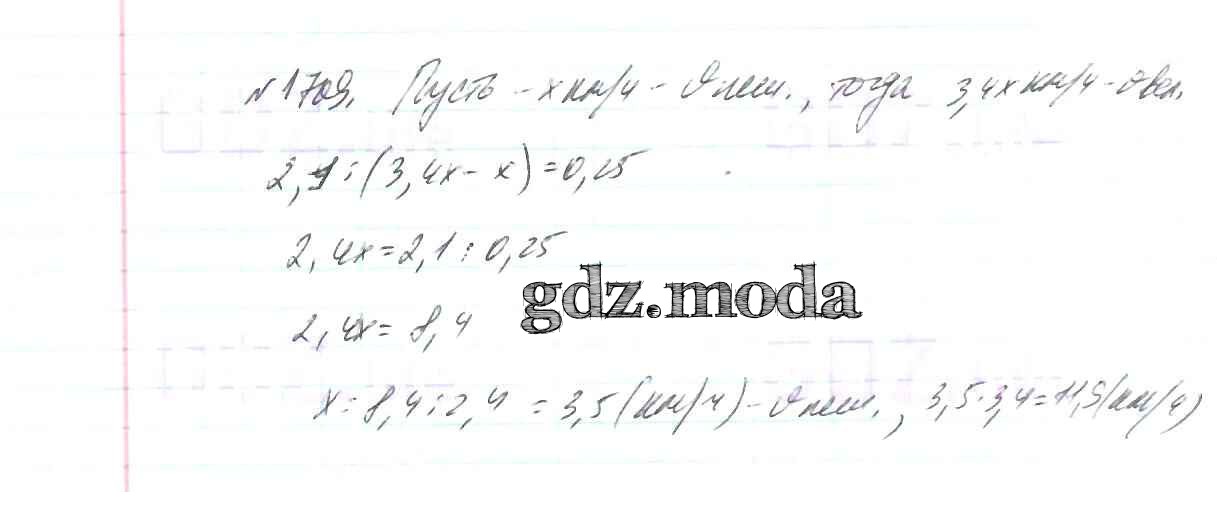 №1709. Пусть - x км/ч - v пеш., тогда 3,4x км/ч - v вел.
2,1 : (3,4x - x) = 0,25
2,4x = 2,1 : 0,25
gdz.moda
2,4x = 8,4
x = 8,4 : 2,4 = 3,5 (км/ч) - v пеш., 3,5 · 3,4 = 11,9 (км/ч)